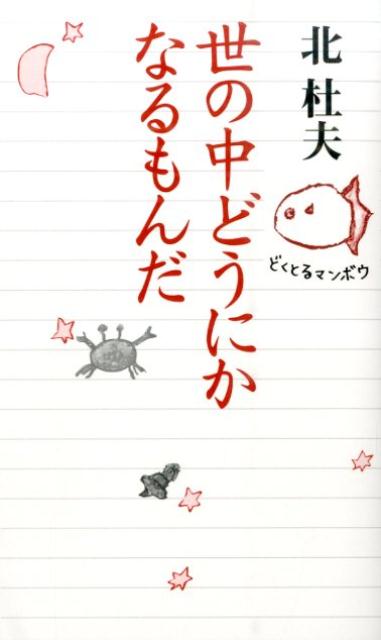 北杜夫
どくとるマンボウ
世の中どうにか
なるもんだ